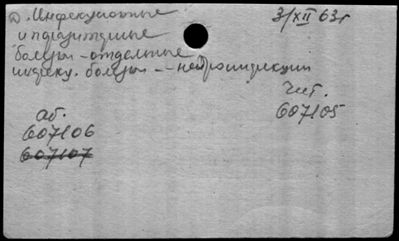 2). Инфекционные 3/XII 63г
и паразитарные
болезни – отдельные
инфекц. болезни – нейроинфекции
Чит.
607105
аб.
607106
607107